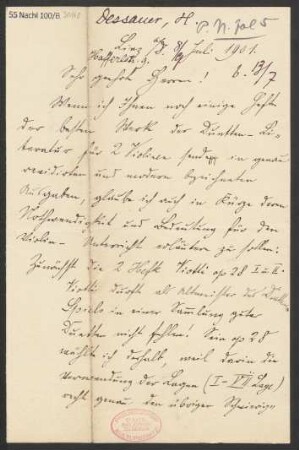 55 Nachl 100/B
Dessauer, H.
Linz a/D. 8/ Juli 1901.
Hafferlstr. 9.
b. 13/7
Sehr geehrte Herren!
Wenn ich Ihnen noch einige Hefte
der besten Werke der Duetten-Li-
teratur für 2 Violinen sende, in genau
revidirten und modern bezeichneten
Ausgaben, glaube ich auch in Kürze deren
Nothwendigkeit und Bedeutung für den
Violin-Unterricht erläutern zu sollen:
Zunächst die 2 Hefte Viotti op 28 I u II.
Viotti durfte als Altmeister des
Spiels in einer Sammlung guter
Duetten nicht fehlen! Sein op 28
wählte ich deshalb, weil darin die
Verwendung der Lagen (I–VII Lage)
recht genau, den übrigen Schwierig-